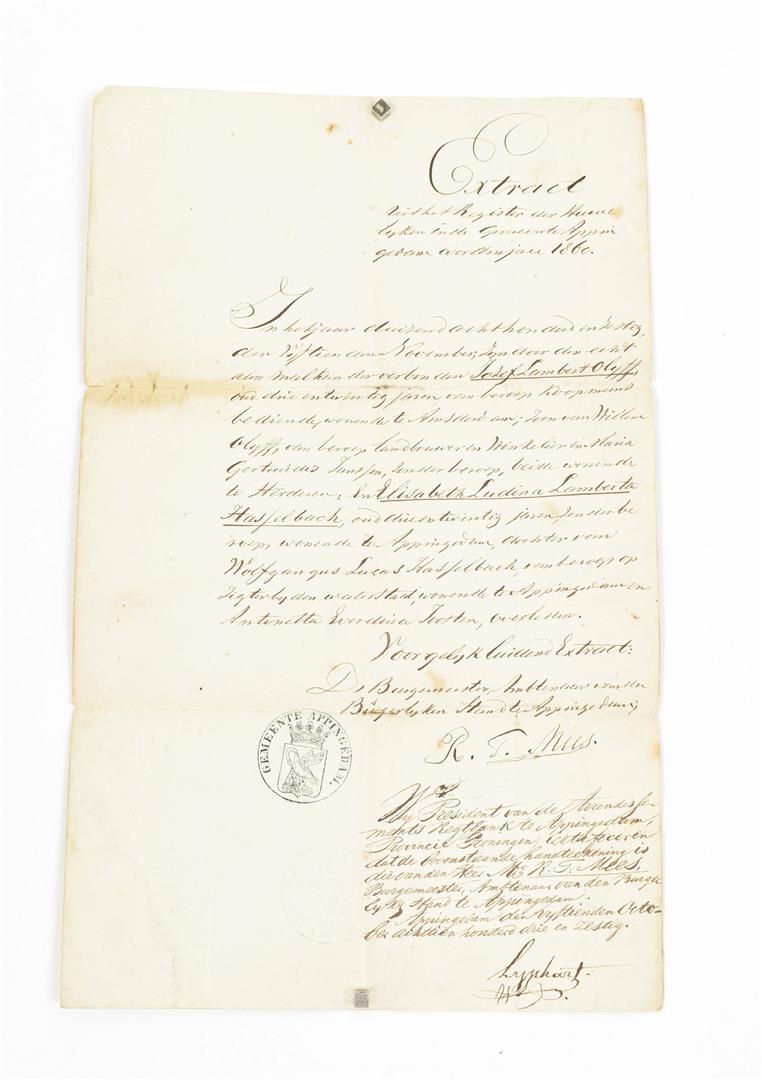 Extract
uit het Register der Huwe
lyken in de Gemeente Appin
gedam over den jare 1860.
In het jaar duizend acht honderd en zestig,
den Vyftienden November, zyn door den echt
aan malkander verbonden Josef Lambert Olyff,
oud drie en twintig jaren, van beroep Koopmans
bediende, wonende te Amsterdam; Zoon van Willem
Olyff, van beroep landbouwer en Winkelier en Maria
Gertruidis Janssen, zonder beroep, beide wonende
te Herderen; En Elisabeth Ludina Lamberta
Hasselbach, oud drie en twintig jaren, zonder be
roep, wonende te Appingedam, dochter van
Wolfgangus Lucas Hasselbach, van beroep op
zigter by den waterstaat, wonende te Appingedam en
Antonetta Everdina Joosten, overleden.
Voor gelyk luidend Extract:
De Burgemeester, Ambtenaar van den
Burgerlyken Stand te Appingedam,
R. T. Mees.
GEMEENTE APPINGEDAM.
Wy President van de Arrondisse-
ments Regtbank te Appingedam,
Provincie Groningen, certificeren
dat de bovenstaande handteekening is
die van den Heer Mr. R. T. Mees,
Burgemeester, Ambtenaar van den Burger
lyke Stand te Appingedam.
Appingedam den vyftienden Octo-
ber achttien honderd drie en zestig.